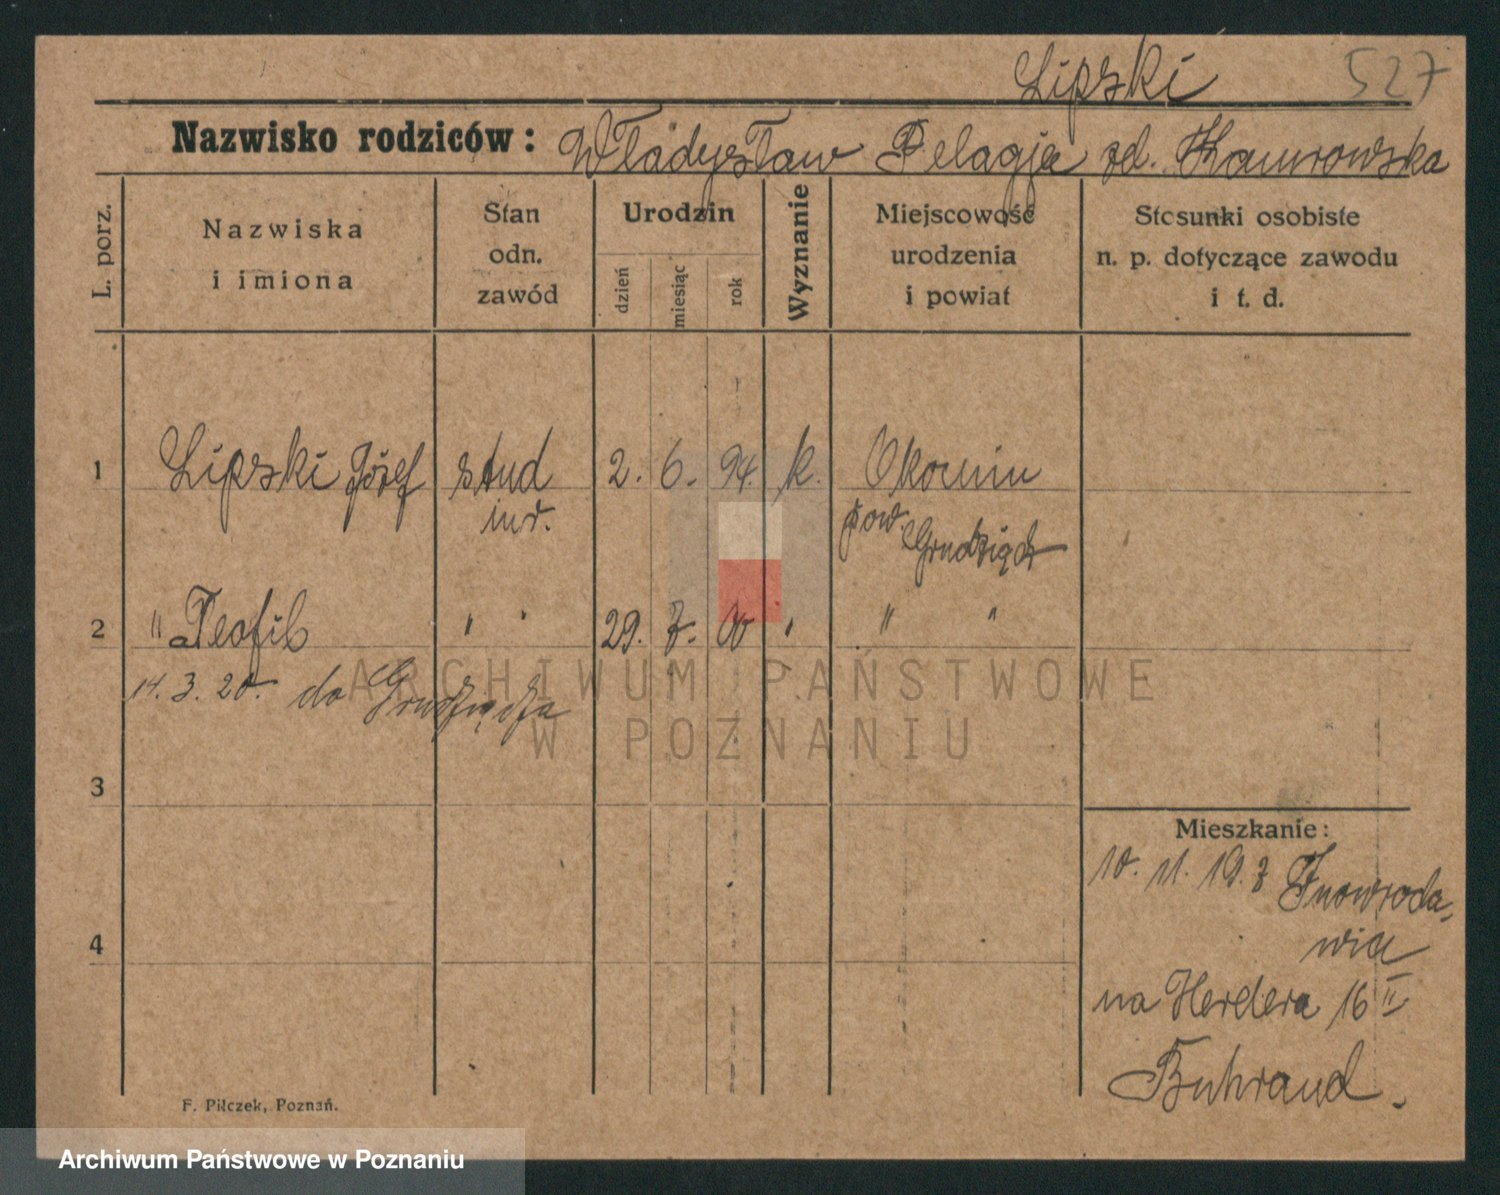 Lipski 527
Nazwisko rodziców: Władysław Pelagja zd. Kamrowska
L. porz.
Nazwiska
i imiona
Stan
odn.
zawód
Urodzin
dzień
miesiąc
rok
Wyznanie
Miejscowość
urodzenia
i powiat
Stosunki osobiste
n. p. dotyczące zawodu
i t. d.
1 Lipski Józef stud 2. 6. 94. k. Okonin
inż. pow. Grudziądz
2 " Teofil " " 29. 7. 00 " " "
14. 3. 20. do Grudziądza
ARCHIWUM PAŃSTWOWE
W POZNANIU
3
4
Mieszkanie:
10. 11. 19. z Inowrocła-
wia
na Herdera 16 II
Buhrand.
F. Pilczek, Poznań.
Archiwum Państwowe w Poznaniu